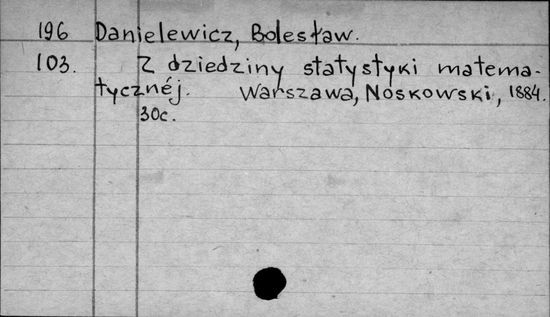 196 Danielewicz, Bolesław.
103. Z dziedziny statystyki matema-
tycznéj. Warszawa, Noskowski, 1884.
30c.